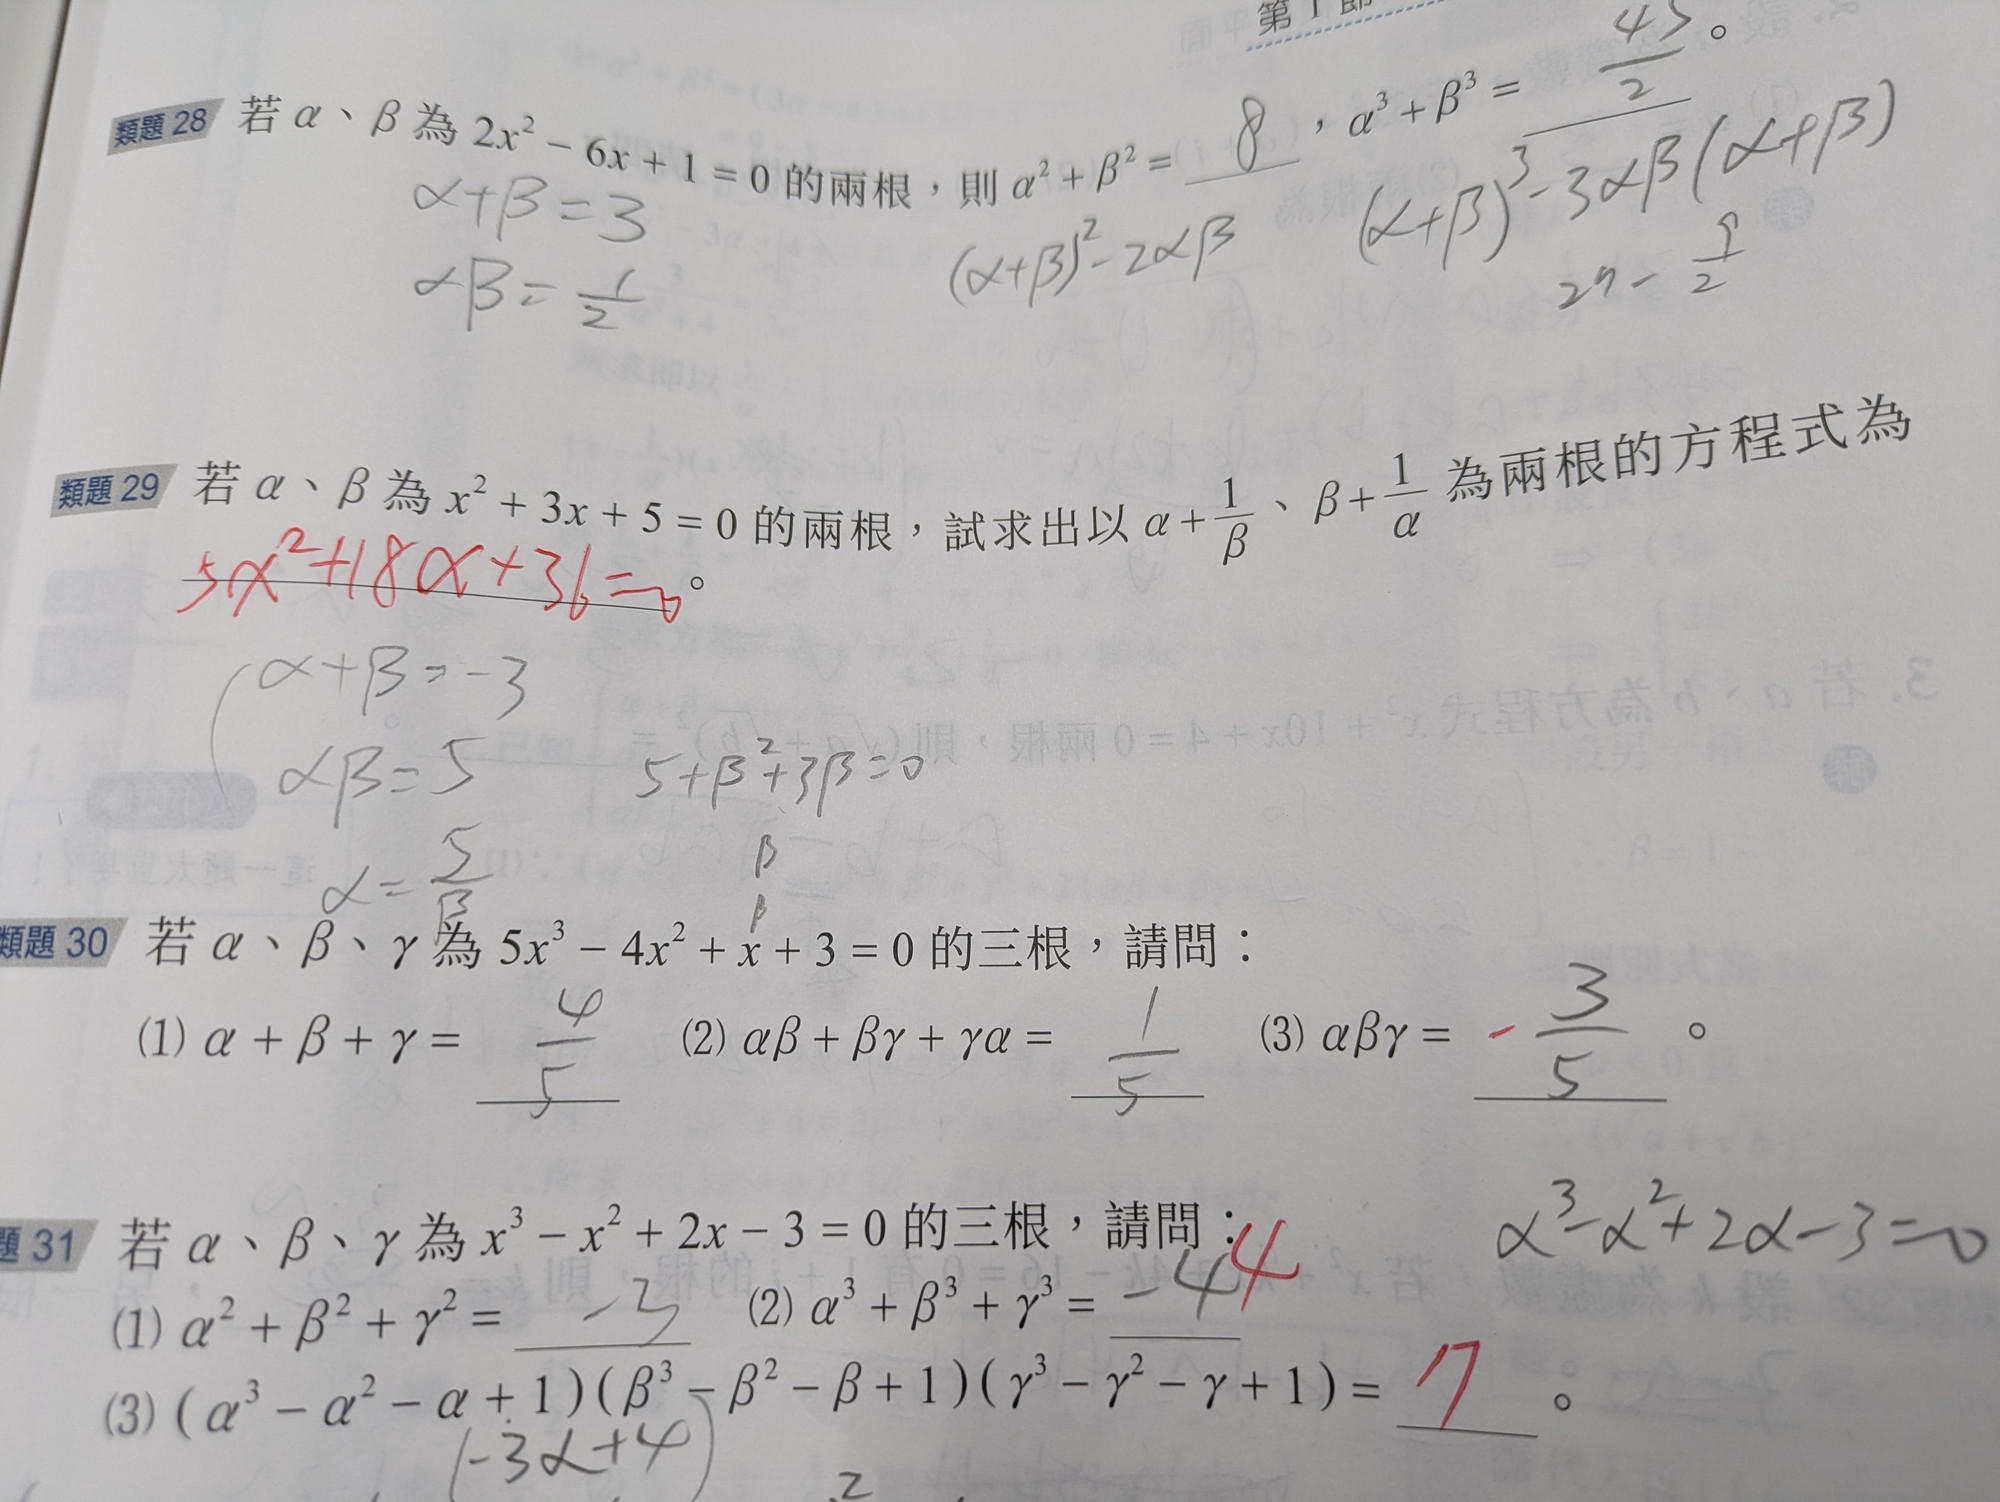 第1節
類題28 若 α、β 為 2x² − 6x + 1 = 0 的兩根，則 α² + β² = 8，α³ + β³ = 45/2。
α+β=3
αβ=1/2
(α+β)²-2αβ
(α+β)³-3αβ(α+β)
27-9/2
類題29 若 α、β 為 x² + 3x + 5 = 0 的兩根，試求出以 α + 1/β、β + 1/α 為兩根的方程式為
5x²+18x+36=0。
α+β=-3
αβ=5
5+β²+3β=0
α=5/β
β
β
類題30 若 α、β、γ 為 5x³ − 4x² + x + 3 = 0 的三根，請問：
(1) α + β + γ = 4/5 (2) αβ + βγ + γα = 1/5 (3) αβγ = -3/5。
題31 若 α、β、γ 為 x³ − x² + 2x − 3 = 0 的三根，請問：
α³-α²+2α-3=0
(1) α² + β² + γ² = -3 (2) α³ + β³ + γ³ = -4 4
(3) (α³ − α² − α + 1)(β³ − β² − β + 1)(γ³ − γ² − γ + 1) = 7。
(-3α+4)
2